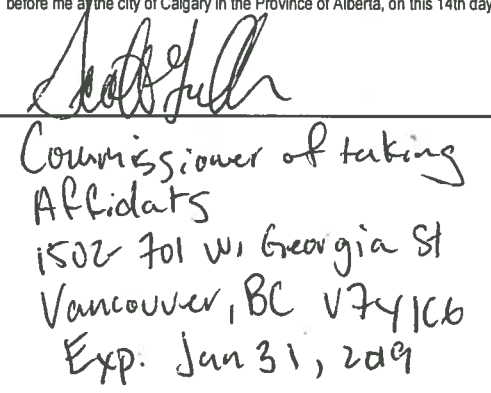 before me at the city of Calgary in the Province of Alberta, on this 14th day
Scott
Commissioner of taking
Affidats
1502 701 W. Georgia St
Vancouver, BC V7Y 1C6
Exp. Jan 31, 2019